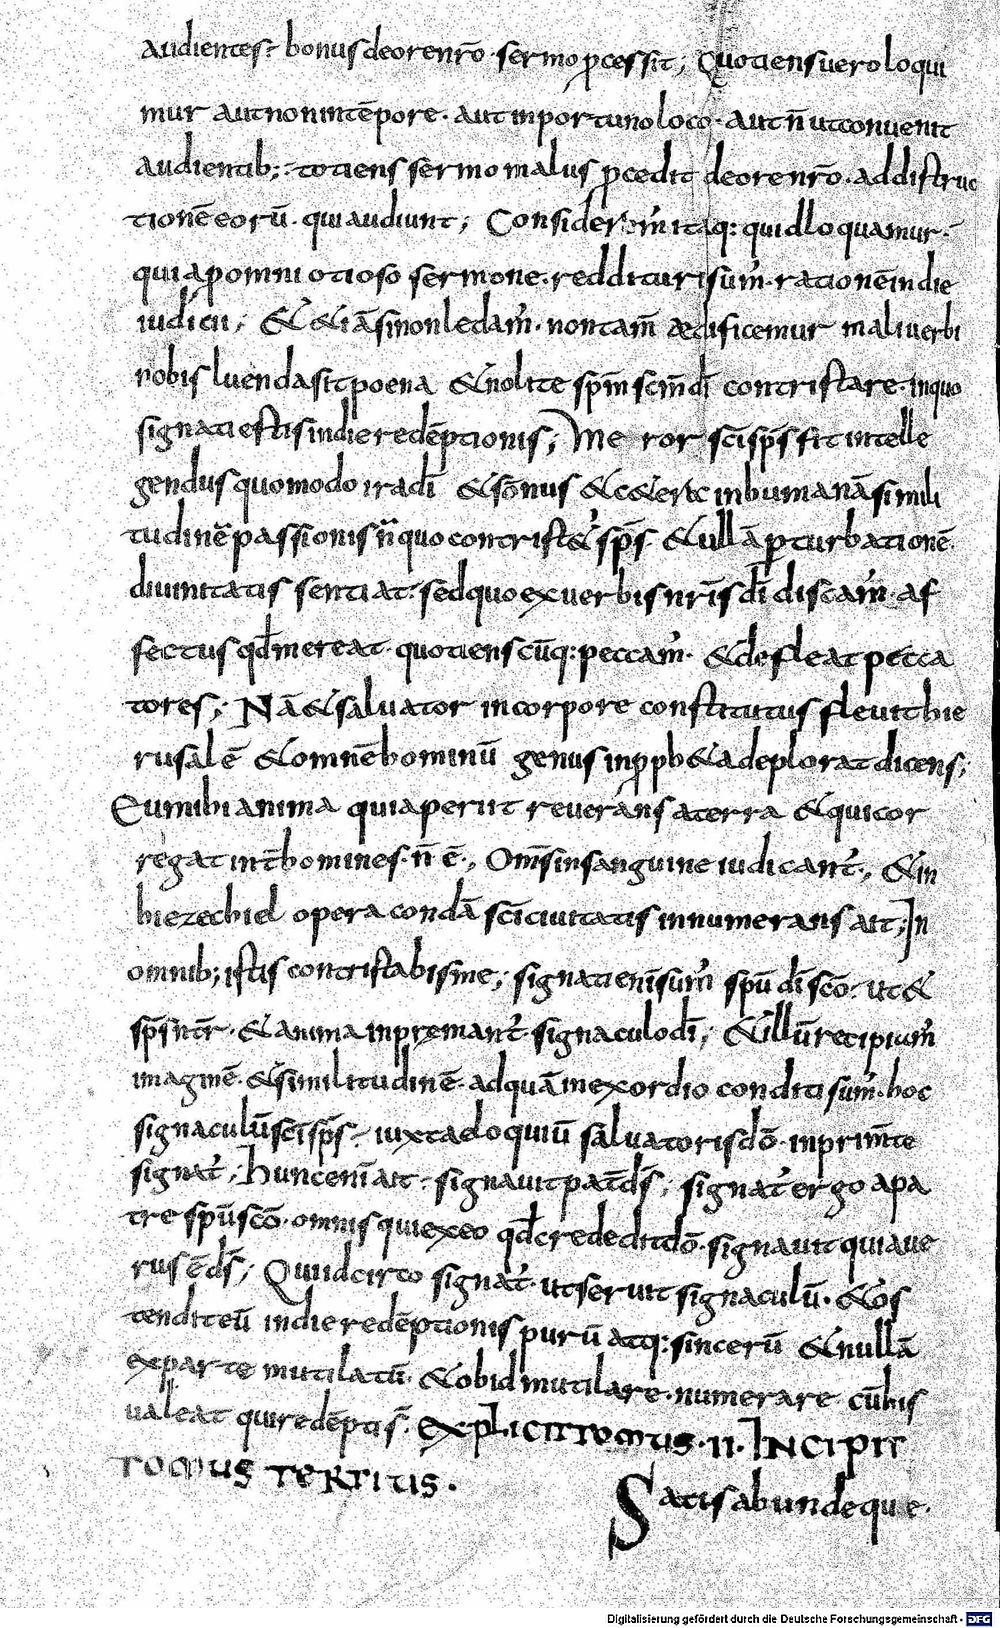 audientes· bonus de ore nr̄o· sermo p̱cessit; Quotiens uero loqui
mur aut non in tēpore· aut inportuno loco· aut n̄ ut conuenit
audientib;· totiens sermo malus p̱cedit de ore nr̄o· ad distruc
tionē eorū· qui audiunt; Considerem̄ itaq: quid loquamur·
quia p̱ omni otioso sermone· reddituri sum̄· rationē in die
iudicii; & &iā si non ledam̄· non tam̄ ædificemur mali uerbi
nobis luenda sit poena & nolite sp̄m sc̄m dī contristare· in quo
signati estis in die redēptionis; sc̄s sp̄s sit intelle
gendus quomodo ira dī & sōnus & c&era in humanā simili
tudinē passionis n̄ quo contrist&ur sp̄s· & ullā p̱turbationē
diuinitatis sentiat· sed quo ex uerbis nr̄is dī discam̄· af
fectus qd̄ mereat· quotienscūq: peccam̄· & defleat pecca
tores; Nā & saluator in corpore constitutus fleuit hie
rusalē & omnē hominū genus in p̱ph&a deplorat dicens;
Eu mihi anima quia periit reuerans a terra & qui cor
regat int̄ homines· n̄ ē·, Om̄s in sanguine iudicant̄·, & in
hiezechiel opera condā sc̄i ciuitatis innumerans ait; In
omnib; istis contristabis me; signati enī sum̄ spū dī scō· ut &
sp̄s nr̄· & anima inpremant̄· signaculo dī; & illū recipium̄
imaginē· & similitudinē· ad quā in exordio conditi sum̄· hoc
signaculū sc̄i sp̄s· iuxta eloquiū saluatoris dō· inprim̄te
signat̄; Hunc enī ait· signauit pat̄ ds̄; signat̄ ergo a pa
tre spū scō· omnis qui ex eo qd̄ crededit dō· signauit quia ue
rus ē ds̄; Qui idcirco signat̄· ut seruit signaculū· & os
tendit eū in die redēptionis purū atq: sincerū & nullā
ex parte mutilatū· & ob id mutilare· numerare cū his
ualeat qui redēpti s̄· Explicit tomus· II· Incipit
tomus tertius·
Satis abundeque·
Digitalisierung gefördert durch die Deutsche Forschungsgemeinschaft - DFG